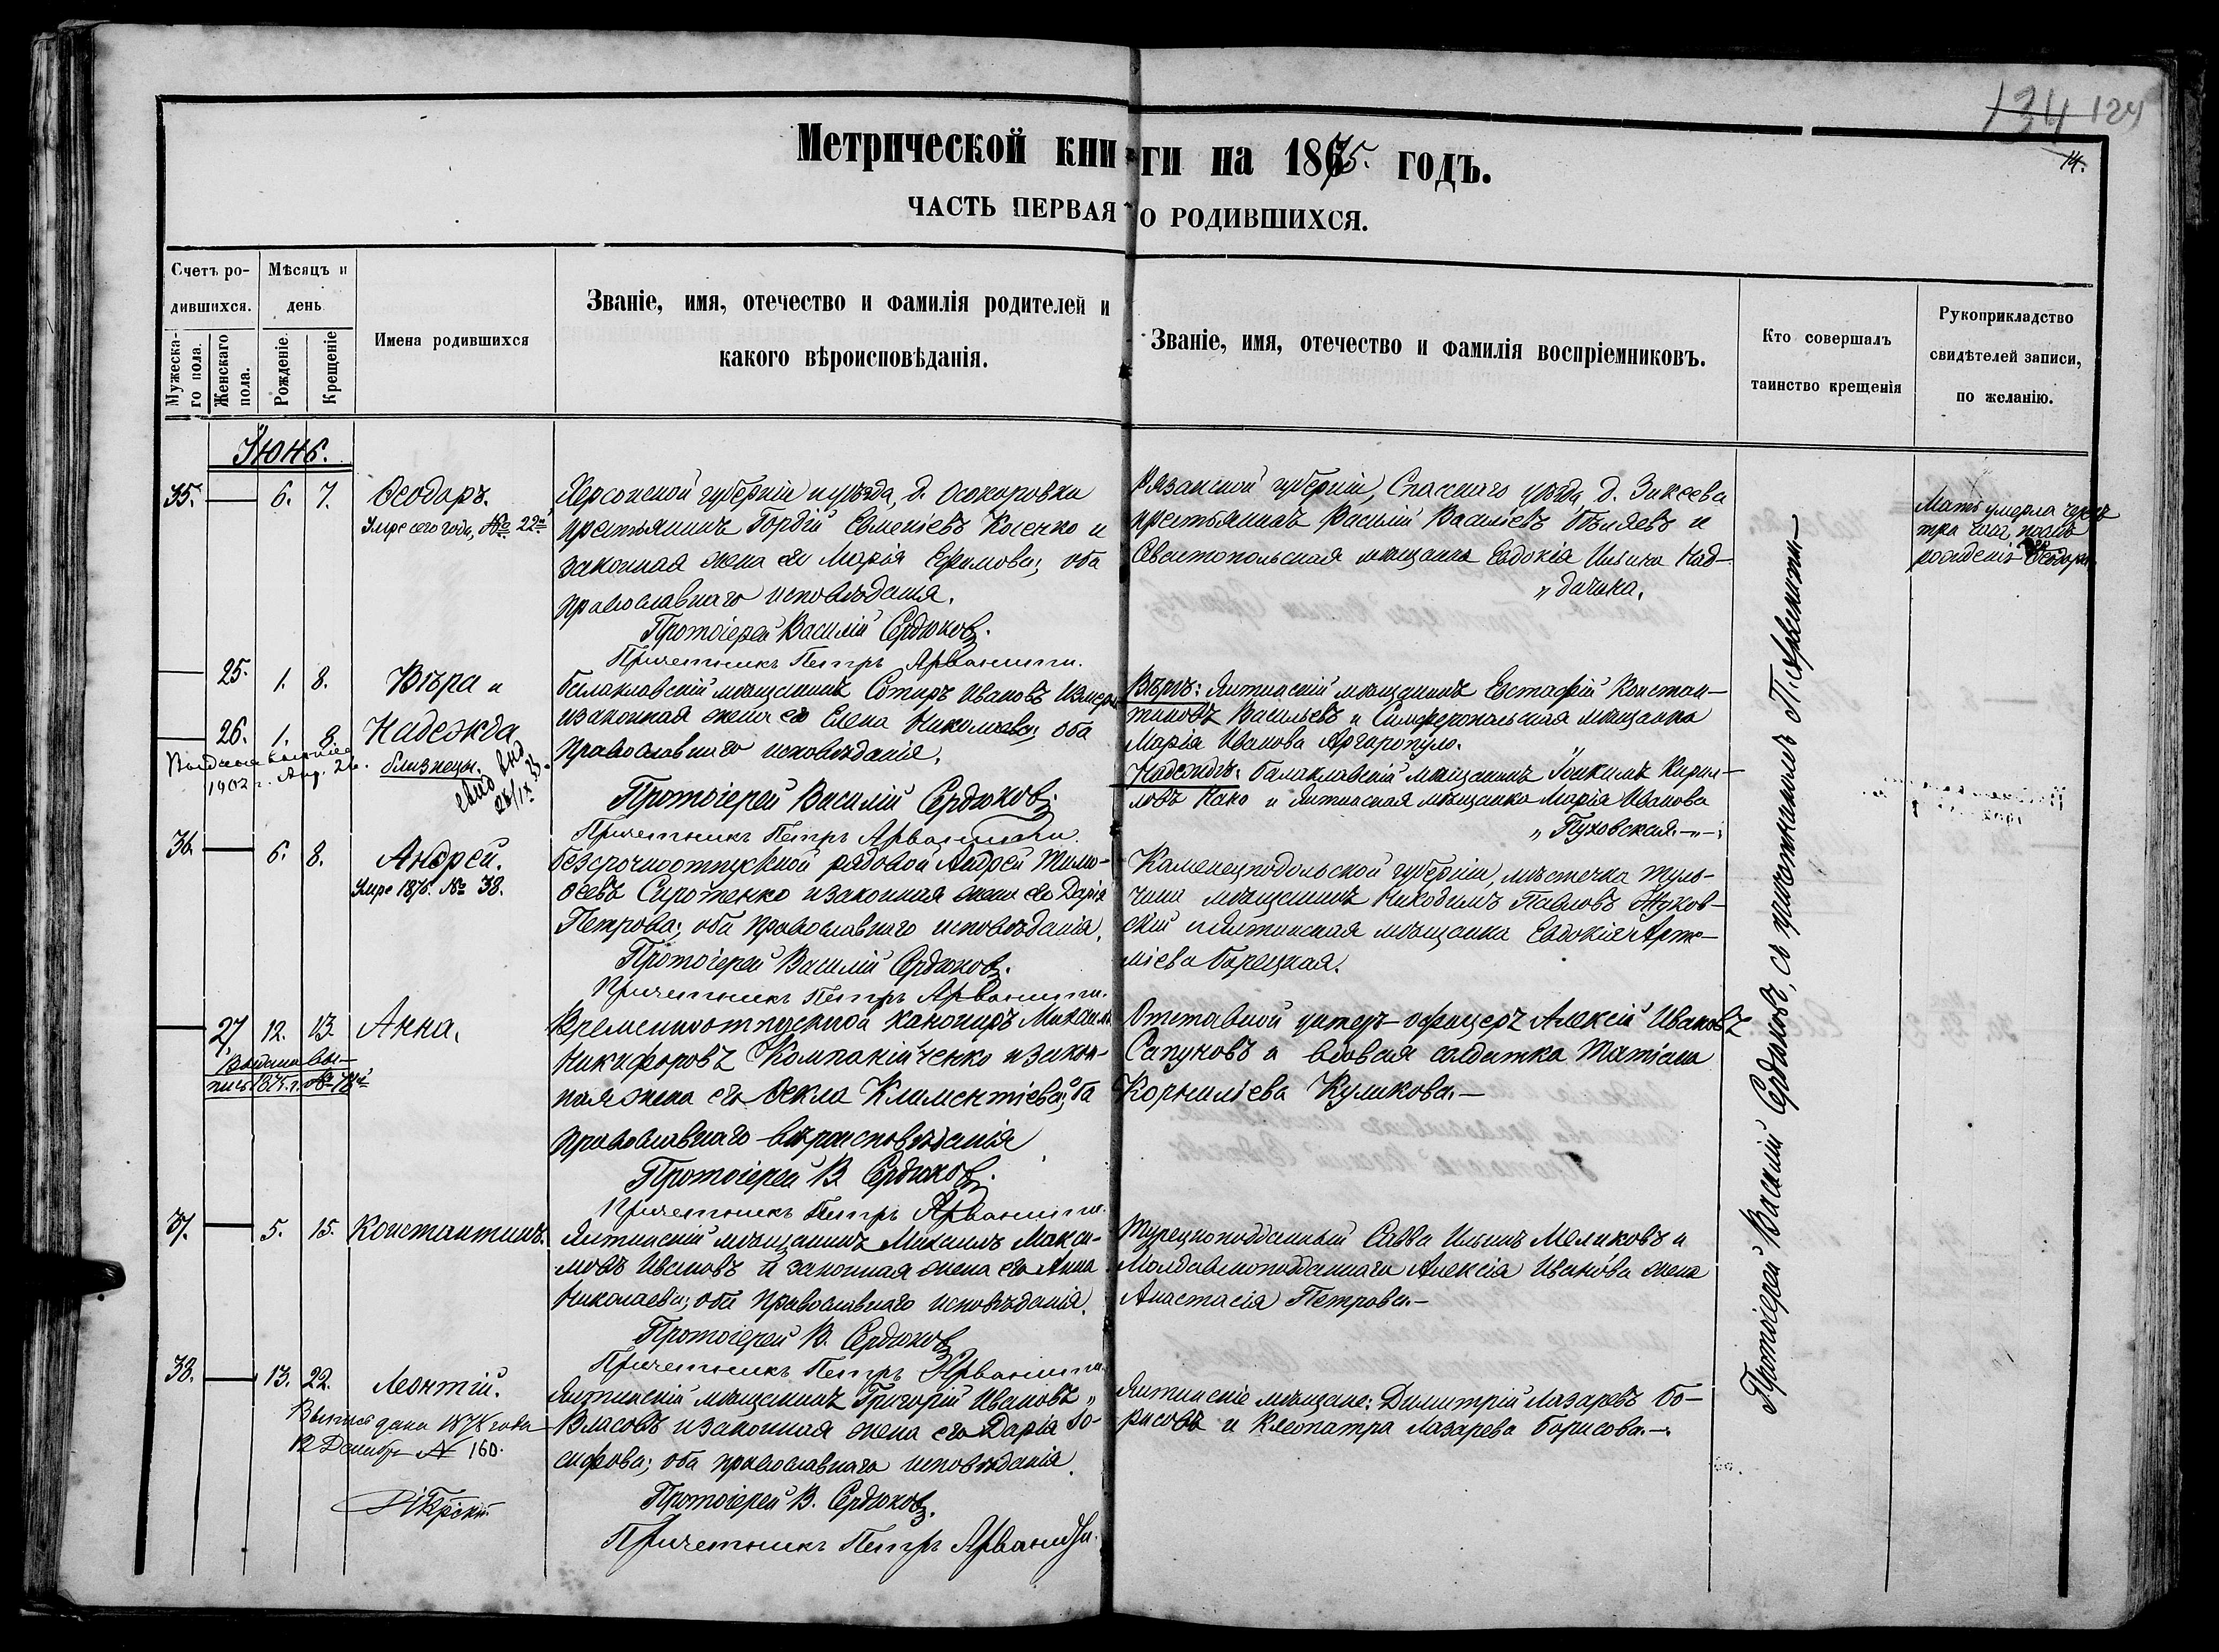 134 124
14.
Метрической книги на 1875. годъ.
ЧАСТЬ ПЕРВАЯ О РОДИВШИХСЯ.
Счетъ ро-
дившихся.
Мужеска-
го пола.
Женскаго
пола.
Мѣсяцъ и
день
Рожденіе.
Крещеніе
Имена родившихся
Званіе, имя, отечество и фамилія родителей и
какого вѣроисповѣданія.
Званіе, имя, отечество и фамилія воспріемниковъ.
Кто совершалъ
таинство крещенія
Рукоприкладство
свидѣтелей записи,
по желанію.
Іюнь.
35. — 6. 7. Ѳеодоръ.
Умре сего года, № 22й
Херсонской губерніи и уѣзда, д. Осокоровки
крестьянинъ Гордій Евменіевъ Косенко и
законная жена его Марія Ефимова; оба
православнаго исповѣданія.
Протоіерей Василій Сердюковъ.
Причетникъ Петръ Арванити.
Рязанской губерніи, Спасскаго уѣзда, д. Зикеева
крестьянинъ Василій Васильевъ Бѣляевъ и
Севастопольская мѣщанка Евдокія Ильина Над-
„ дачька.
Мать умерла чрезъ
три часа послѣ
рожденія Ѳеодора
— 25. 1. 8. Вѣра и
— 26. 1. 8. Надежда
близнецы.
1902 г. Апр. 26.
Балаклавскій мѣщанинъ Сотиръ Ивановъ
и законная жена его Елена Николаева; оба
православнаго исповѣданія.
Протоіерей Василій Сердюковъ.
Причетникъ Петръ Арванити.
Вѣры: Ялтинскій мѣщанинъ Евстафій Констан-
тиновъ Васильевъ и Симферопольская мѣщанка
Марія Иванова Аргиропуло.
Надежды: Балаклавскій мѣщанинъ Іоакимъ Кирил-
ловъ Како и Ялтинская мѣщанка Марія Иванова
„ Пуховская. — „ —
36. — 6. 8. Андрей.
Умре 1875. № 38.
Безсрочноотпускной рядовой Андрей Тимо-
ѳеевъ Сиротенко и законная жена его Дарія
Петрова; оба православнаго исповѣданія.
Протоіерей Василій Сердюковъ.
Причетникъ Петръ Арванити.
Каменецподольской губерніи, мѣстечка Туль-
чина мѣщанинъ Никодимъ Павловъ Жуков-
скій и Ялтинская мѣщанка Евдокія Арте-
міева Барецкая.
— 27. 12. 13. Анна.
Выдана вы-
пись 1875. г. № 78й
Временноотпускной канониръ Михаилъ
Никифоровъ Компанійченко и закон-
ная жена его Ѳекла Климентіева; оба
православнаго вѣроисповѣданія
Протоіерей В. Сердюковъ.
Причетникъ Петръ Арванити.
Отставной унтеръ-офицеръ Алексій Ивановъ
Сапуновъ и вдовая солдатка Татіана
Корниліева Куликова. —
37. — 5. 15. Константинъ.
Ялтинскій мѣщанинъ Михаилъ Макси-
мовъ Ивановъ и законная жена его Анна
Николаева; оба православнаго исповѣданія.
Протоіерей В. Сердюковъ
Причетникъ Петръ Арванити.
Турецкоподданный Савва Ильинъ Меликовъ и
Молдавскоподданнаго Алексія Иванова жена
Анастасія Петрова. —
38. — 13. 22. Леонтій.
Выпись дана 1878 года
12 Декабря № 160.
Ялтинскій мѣщанинъ Григорій Ивановъ „
Власовъ и законная жена его Дарія Іо-
сифова; оба православнаго исповѣданія.
Протоіерей В. Сердюковъ.
Причетникъ Петръ Арванити.
Ялтинскіе мѣщане: Димитрій Лазаревъ Бо-
рисовъ и Клеопатра Лазарева Борисова. —
Протоіерей Василій Сердюковъ, съ причетникомъ П. Арванити —